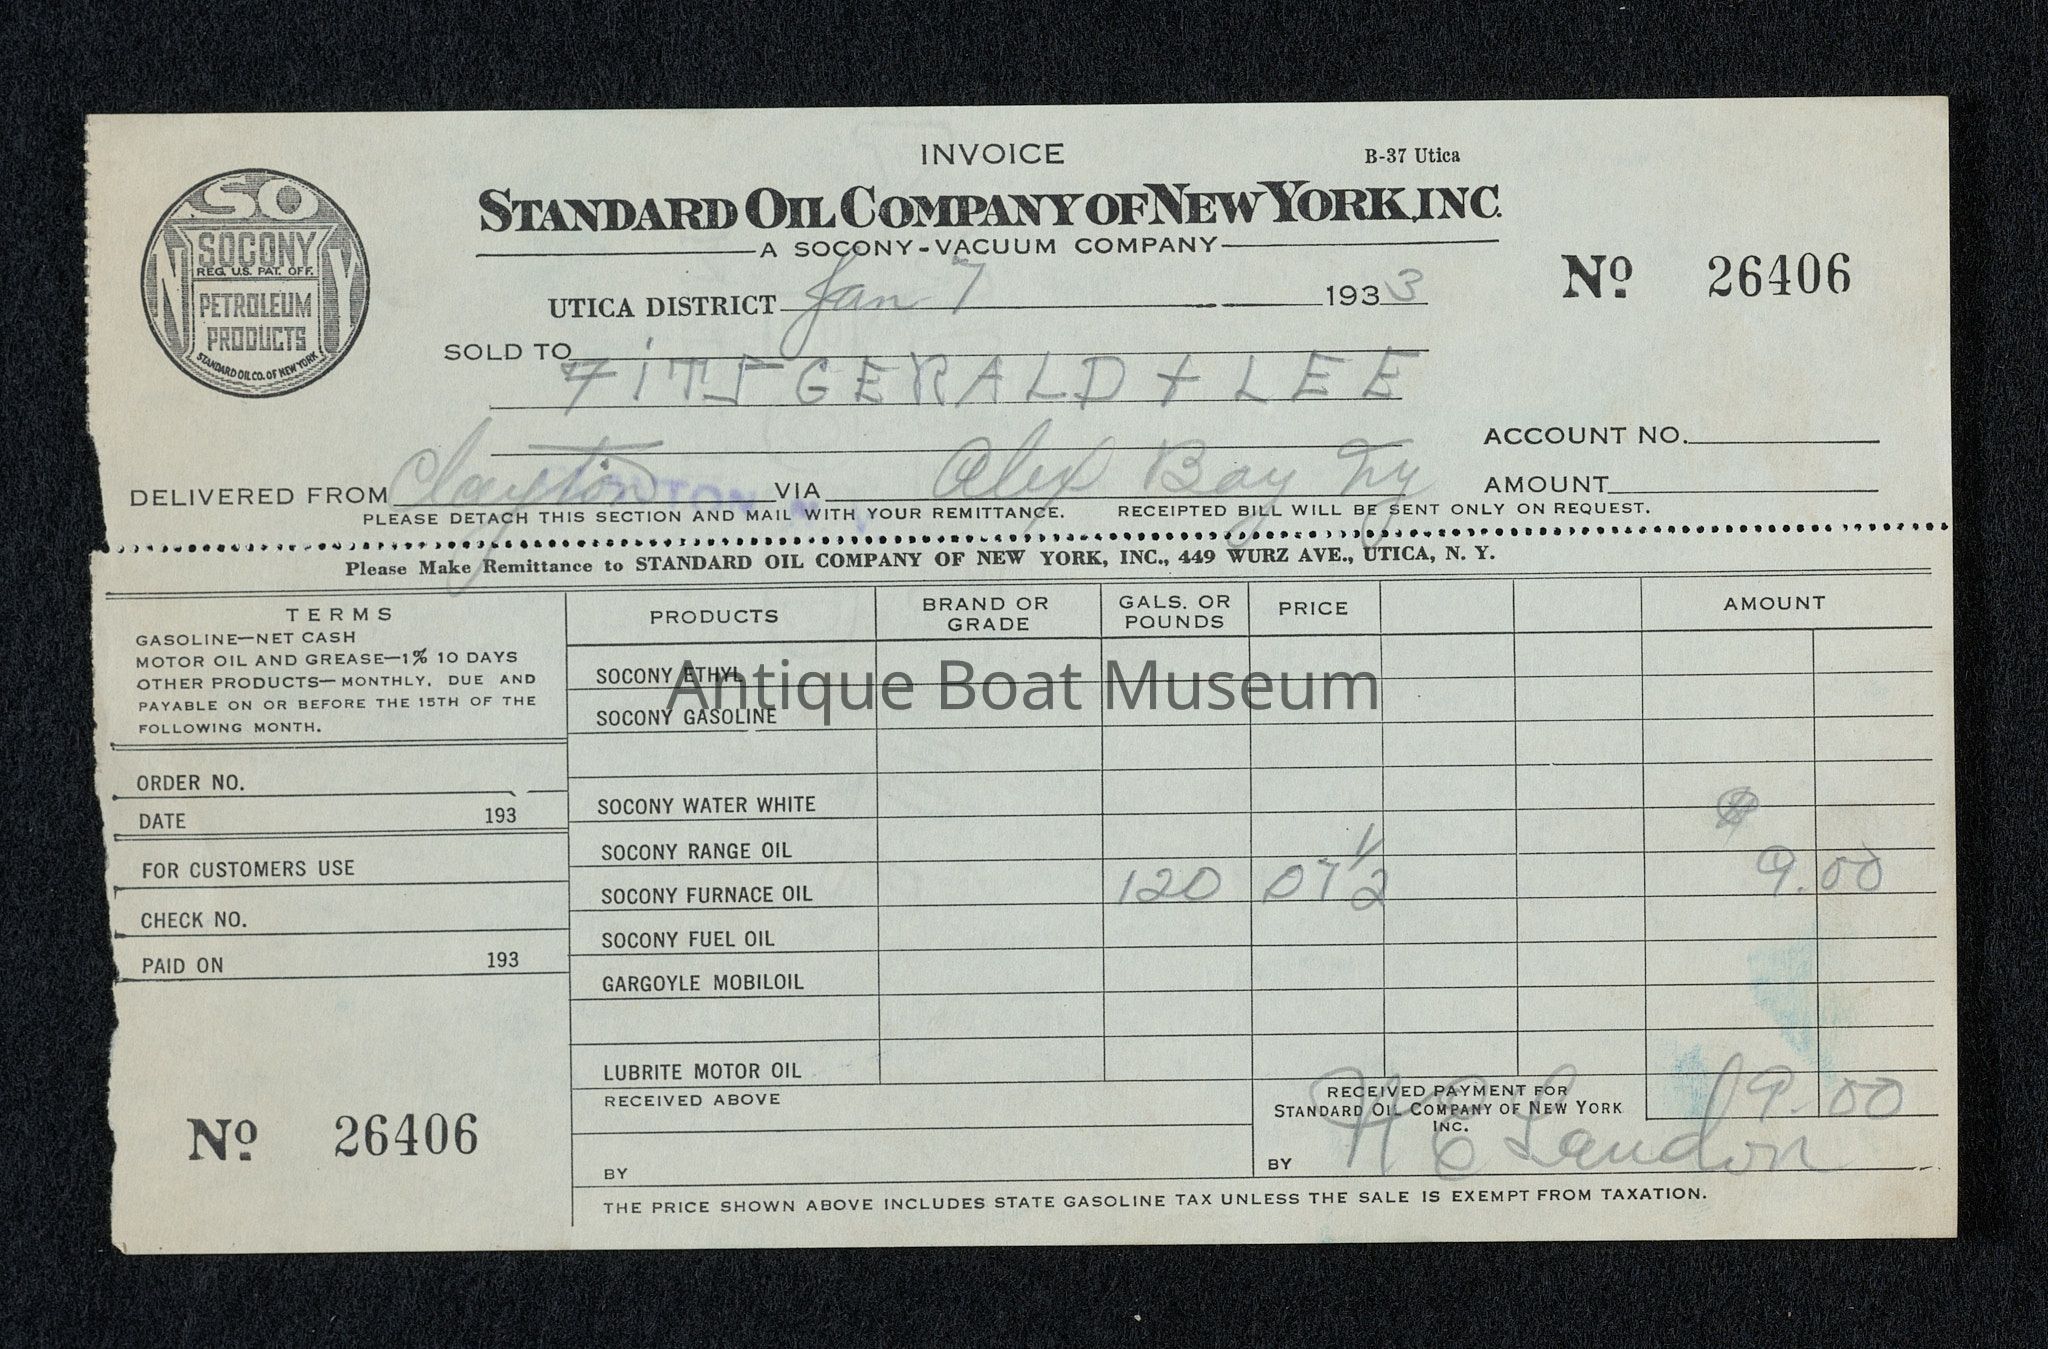 INVOICE
B-37 Utica
STANDARD OIL COMPANY OF NEW YORK, INC.
A SOCONY-VACUUM COMPANY
SO
NY
SOCONY
REG. U.S. PAT. OFF.
PETROLEUM
PRODUCTS
STANDARD OIL CO. OF NEW YORK
No 26406
UTICA DISTRICT Jan 7 1933
SOLD TO
FITSGERALD + LEE
ACCOUNT NO.
DELIVERED FROM Clayton VIA Alex Bay Ny
AMOUNT
PLEASE DETACH THIS SECTION AND MAIL WITH YOUR REMITTANCE. RECEIPTED BILL WILL BE SENT ONLY ON REQUEST.
Please Make Remittance to STANDARD OIL COMPANY OF NEW YORK, INC., 449 WURZ AVE., UTICA, N. Y.
TERMS
GASOLINE—NET CASH
MOTOR OIL AND GREASE—1% 10 DAYS
OTHER PRODUCTS—MONTHLY, DUE AND
PAYABLE ON OR BEFORE THE 15TH OF THE
FOLLOWING MONTH.
ORDER NO.
DATE 193
FOR CUSTOMERS USE
CHECK NO.
PAID ON 193
No 26406
PRODUCTS BRAND OR GRADE GALS. OR POUNDS PRICE AMOUNT
SOCONY ETHYL
Antique Boat Museum
SOCONY GASOLINE
SOCONY WATER WHITE
SOCONY RANGE OIL
SOCONY FURNACE OIL 120 07 1/2 9.00
SOCONY FUEL OIL
GARGOYLE MOBILOIL
LUBRITE MOTOR OIL
RECEIVED ABOVE
BY
RECEIVED PAYMENT FOR
STANDARD OIL COMPANY OF NEW YORK
INC.
9.00
BY
THE PRICE SHOWN ABOVE INCLUDES STATE GASOLINE TAX UNLESS THE SALE IS EXEMPT FROM TAXATION.